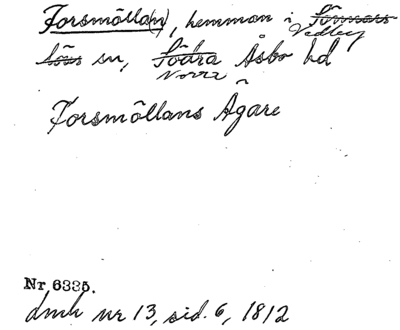 Forsmölla(n), hemman i Förmars
Vedby
löss sn, Södra Åsbo hd
Norra
Forsmöllans Ägare
Nr 6335.
dmk nr 13, sid. 6, 1812